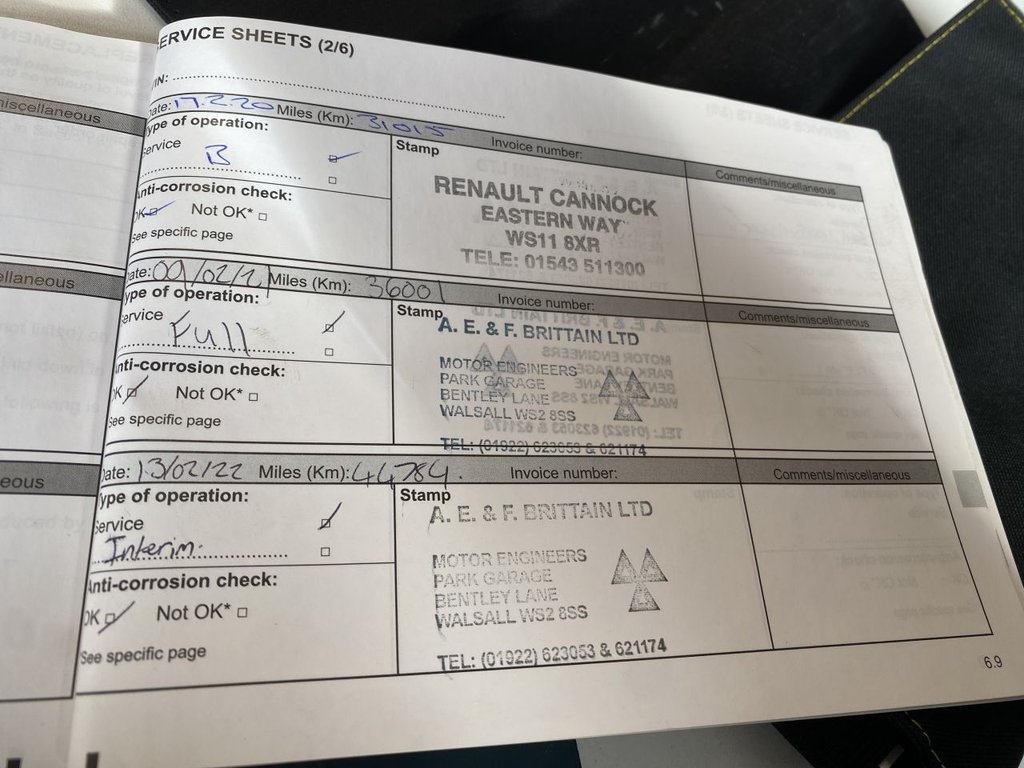 miscellaneous
ellaneous
eous
ERVICE SHEETS (2/6)
IN:
ate: 17.2.20 Miles (Km): 31015 Invoice number: Comments/miscellaneous
ype of operation:
ervice
B
Anti-corrosion check:
OK Not OK*
See specific page
Stamp
RENAULT CANNOCK
EASTERN WAY
WS11 8XR
TELE: 01543 511300
ate: 09/02/21 Miles (Km): 36001 Invoice number: Comments/miscellaneous
Type of operation:
ervice
Full
nti-corrosion check:
K Not OK*
See specific page
Stamp
A. E. & F. BRITTAIN LTD
MOTOR ENGINEERS
PARK GARAGE
BENTLEY LANE
WALSALL WS2 8SS
TEL: (01922) 623053 & 621174
Date: 13/02/22 Miles (Km): 44784. Invoice number: Comments/miscellaneous
ype of operation:
ervice
Interim.
Anti-corrosion check:
OK Not OK*
See specific page
Stamp
A. E. & F. BRITTAIN LTD
MOTOR ENGINEERS
PARK GARAGE
BENTLEY LANE
WALSALL WS2 8SS
TEL: (01922) 623053 & 621174
6.9